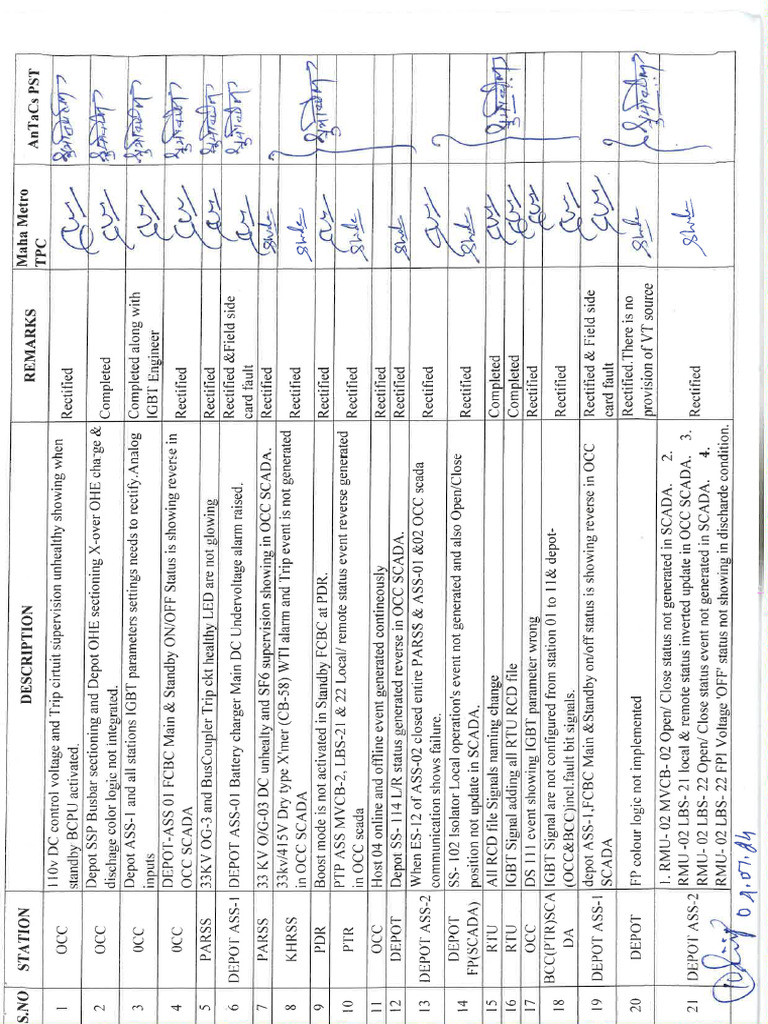 S.NO STATION DESCRIPTION REMARKS Maha Metro TPC AnTaCs PST
1 OCC 110v DC control voltage and Trip cirtuit supervision unhealthy showing when
standby BCPU activated. Rectified
2 OCC Depot SSP Busbar sectioning and Depot OHE sectioning X-over OHE charge &
dischage color logic not integrated. Completed
3 0CC Depot ASS-1 and all stations IGBT parameters settings needs to rectify.Analog
inputs Completed along with
IGBT Engineer
4 0CC DEPOT-ASS 01 FCBC Main & Standby ON/OFF Status is showing reverse in
OCC SCADA Rectified
5 PARSS 33KV OG-3 and BusCoupler Trip ckt healthy LED are not glowing Rectified
6 DEPOT ASS-1 DEPOT ASS-01 Battery charger Main DC Undervoltage alarm raised. Rectified &Field side
card fault
7 PARSS 33 KV O/G-03 DC unhealty and SF6 supervision showing in OCC SCADA. Rectified
8 KHRSS 33kv/415V Dry type X'mer (CB-58) WTI alarm and Trip event is not generated
in OCC SCADA Rectified
9 PDR Boost mode is not activated in Standby FCBC at PDR. Rectified
10 PTR PTP ASS MVCB-2, LBS-21 & 22 Local/ remote status event reverse generated
in OCC scada Rectified
11 OCC Host 04 online and offline event generated contineously Rectified
12 DEPOT Depot SS- 114 L/R status generated reverse in OCC SCADA. Rectified
13 DEPOT ASS-2 When ES-12 of ASS-02 closed entire PARSS & ASS-01 &02 OCC scada
communication shows failure. Rectified
14 DEPOT
FP(SCADA) SS- 102 Isolator Local operation's event not generated and also Open/Close
position not update in SCADA. Rectified
15 RTU All RCD file Signals naming change Completed
16 RTU IGBT Signal adding all RTU RCD file Completed
17 OCC DS 111 event showing IGBT parameter wrong Rectified
18 BCC(PTR)SCA
DA IGBT Signal are not configured from station 01 to 11& depot-
(OCC&BCC)incl.fault bit signals. Rectified
19 DEPOT ASS-1 depot ASS-1,FCBC Main &Standby on/off status is showing reverse in OCC
SCADA Rectified & Field side
card fault
20 DEPOT FP colour logic not implemented Rectified.There is no
provision of VT source
21 DEPOT ASS-2 1. RMU- 02 MVCB- 02 Open/ Close status not generated in SCADA. 2.
RMU -02 LBS- 21 local & remote status inverted update in OCC SCADA. 3.
RMU- 02 LBS- 22 Open/ Close status event not generated in SCADA. 4.
RMU- 02 LBS- 22 FPI Voltage 'OFF' status not showing in discharde condition. Rectified